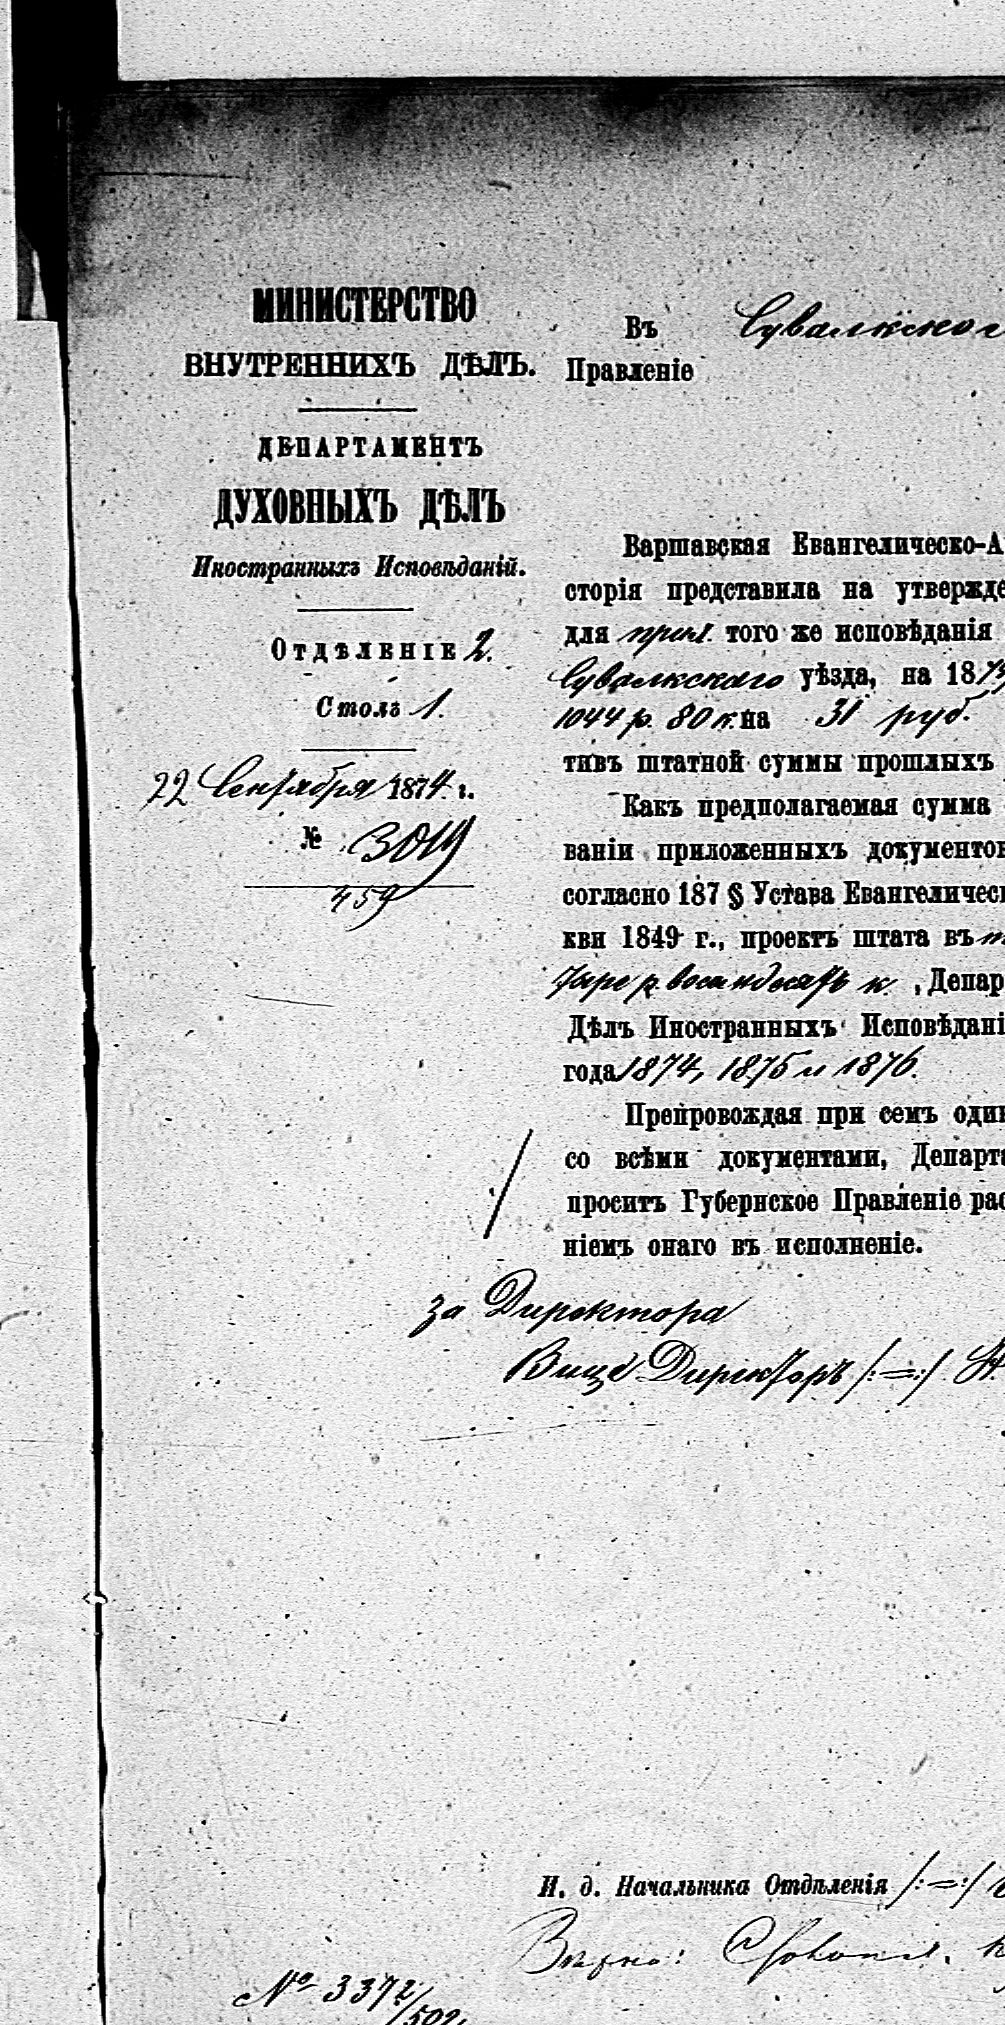 МИНИСТЕРСТВО
ВНУТРЕННИХЪ ДѢЛЪ.
ДЕПАРТАМЕНТЪ
ДУХОВНЫХЪ ДѢЛЪ
Иностранныхъ Исповѣданій.
Отдѣленіе 2.
Столъ 1.
22 Сентября 1874 г.
№ 3019
459
Въ Сувалкское
Правленіе
Варшавская Евангелическо-А
сторія представила на утвержде
для прих. того же исповѣданія
Сувалкскаго уѣзда, на 187
1044 р. 80 к. на 31 руб.
тивъ штатной суммы прошлыхъ
Какъ предполагаемая сумма
ваніи приложенныхъ документов
согласно 187 § Устава Евангелическ
кви 1849 г., проектъ штата въ
тыре р. восемьдесятъ к., Депар
Дѣлъ Иностранныхъ Исповѣдані
года 1874, 1875 и 1876.
Препровождая при семъ один
со всѣми документами, Департа
проситъ Губернское Правленіе рас
ніемъ онаго въ исполненіе.
за Директора
Вице Директоръ /:=:/
И. д. Начальника Отдѣленія /:=:/
Вѣрно:
№ 3372/502